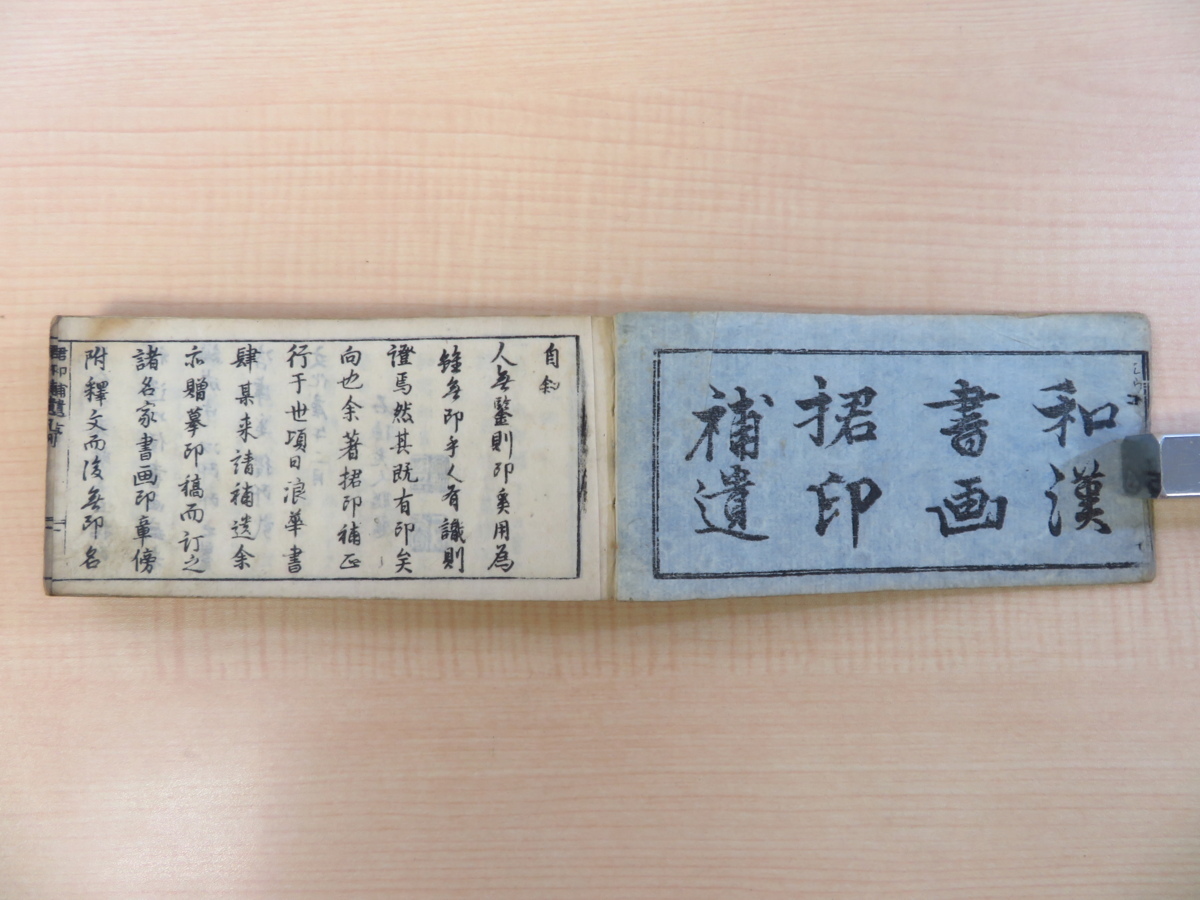 和漢
書画
捃印
補遺
自叙
人無鑒則印奚用為
雖無印乎人有識則
證焉然其既有印矣
向也余著捃印補正
行于世頃日浪華書
肆某来請補遺余
示贈摹印稿而訂之
諸名家書画印章傍
附釋文而後無印名